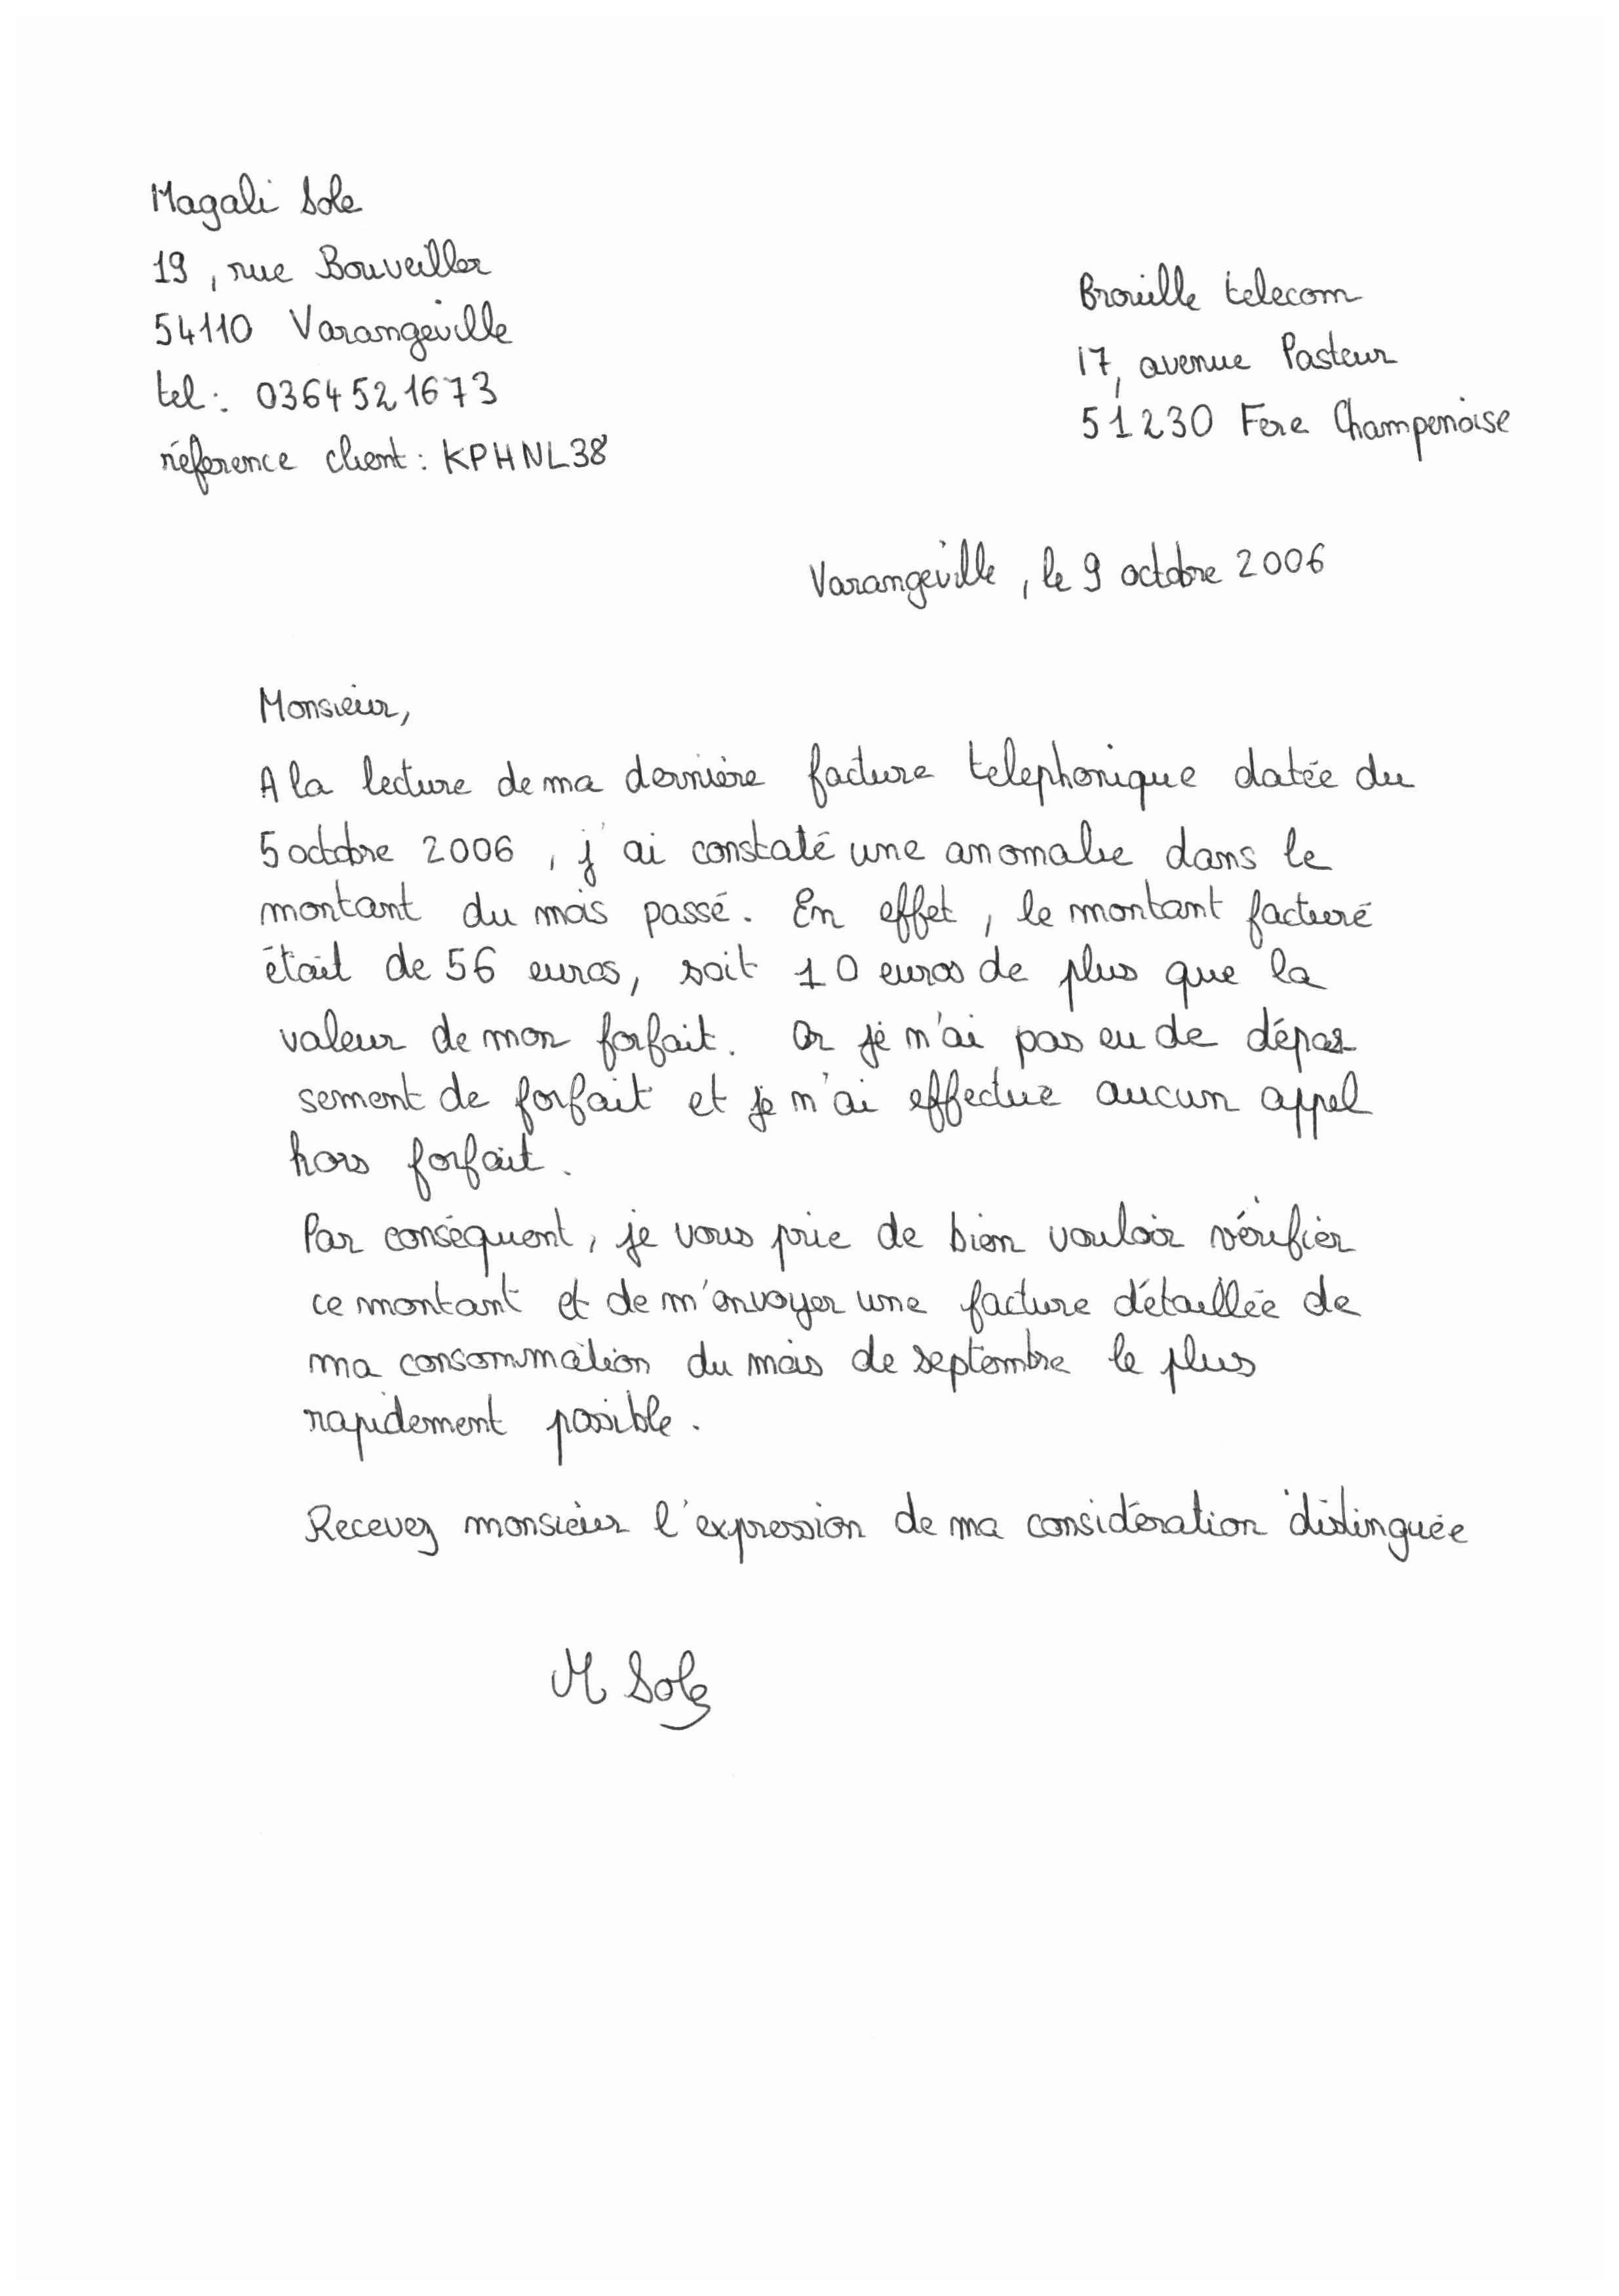 Magali Sole
19, rue Bouveiller
54110 Varangeville
tel : 0364521673
réference client : KPHNL38
Brouille telecom
17, avenue Pasteur
51230 Fere Champenoise
Varangeville, le 9 octobre 2006
Monsieur,
A la lecture de ma dernière facture telephonique datée du
5 octobre 2006, j'ai constaté une anomalie dans le
montant du mois passé. En effet, le montant facturé
était de 56 euros, soit 10 euros de plus que la
valeur de mon forfait. Or je n'ai pas eu de dépas
sement de forfait et je n'ai effectué aucun appel
hors forfait.
Par conséquent, je vous prie de bien vouloir vérifier
ce montant et de m'envoyer une facture détaillée de
ma consommation du mois de septembre le plus
rapidement possible.
Recevez monsieur l'expression de ma considération distinguée
M Sole